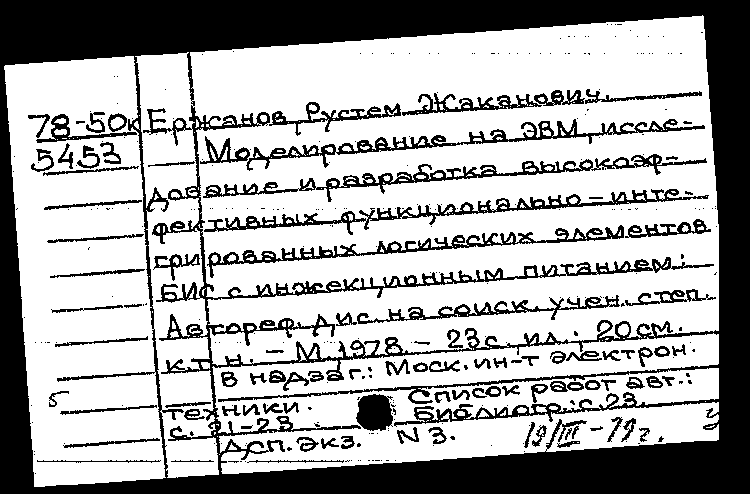 78-50к Ержанов, Рустем Жаканович.
5453 Моделирование на ЭВМ, иссле-
дование и разработка высокоэф-
фективных функционально-инте-
грированных логических элементов
БИС с инжекционным питанием:
Автореф. дис. на соиск. учен. степ.
к.т.н. - М., 1978. - 23 с. ил.; 20 см.
В надзаг.: Моск. ин-т электрон.
техники. Список работ авт.:
с. 21-23 Библиогр.: с. 23.
Дсп. Экз. N 3. 19/III-79г.
5